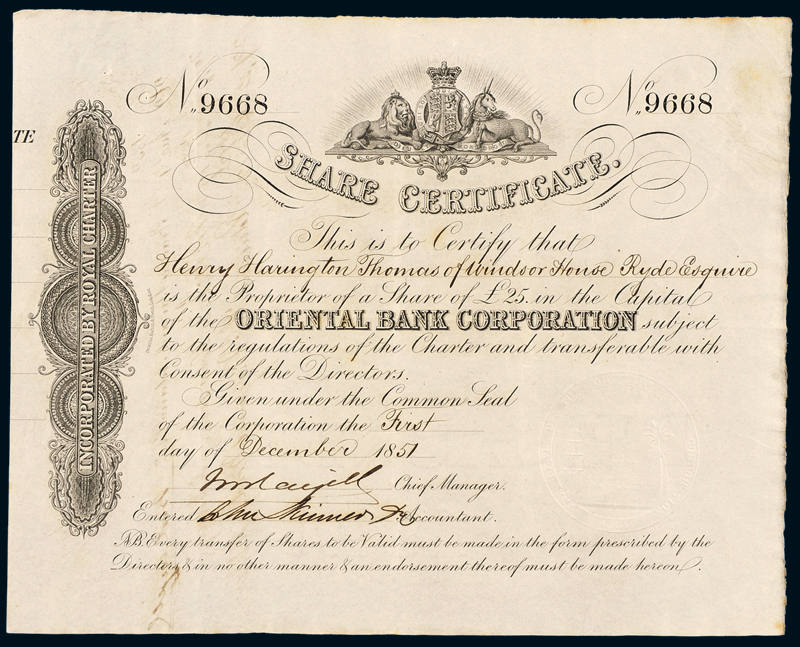 TE
No. 9668
No. 9668
SHARE CERTIFICATE.
INCORPORATED BY ROYAL CHARTER
This is to Certify that
Henry Harington Thomas of Windsor House Ryde Esquire
is the Proprietor of a Share of £25. in the Capital
of the ORIENTAL BANK CORPORATION subject
to the regulations of the Charter and transferable with
Consent of the Directors.
Given under the Common Seal
of the Corporation the First
day of December 1851
Chief Manager.
Entered John Skinner Accountant.
NB. Every transfer of Shares to be Valid must be made in the form prescribed by the
Directors & in no other manner & an endorsement thereof must be made hereon.